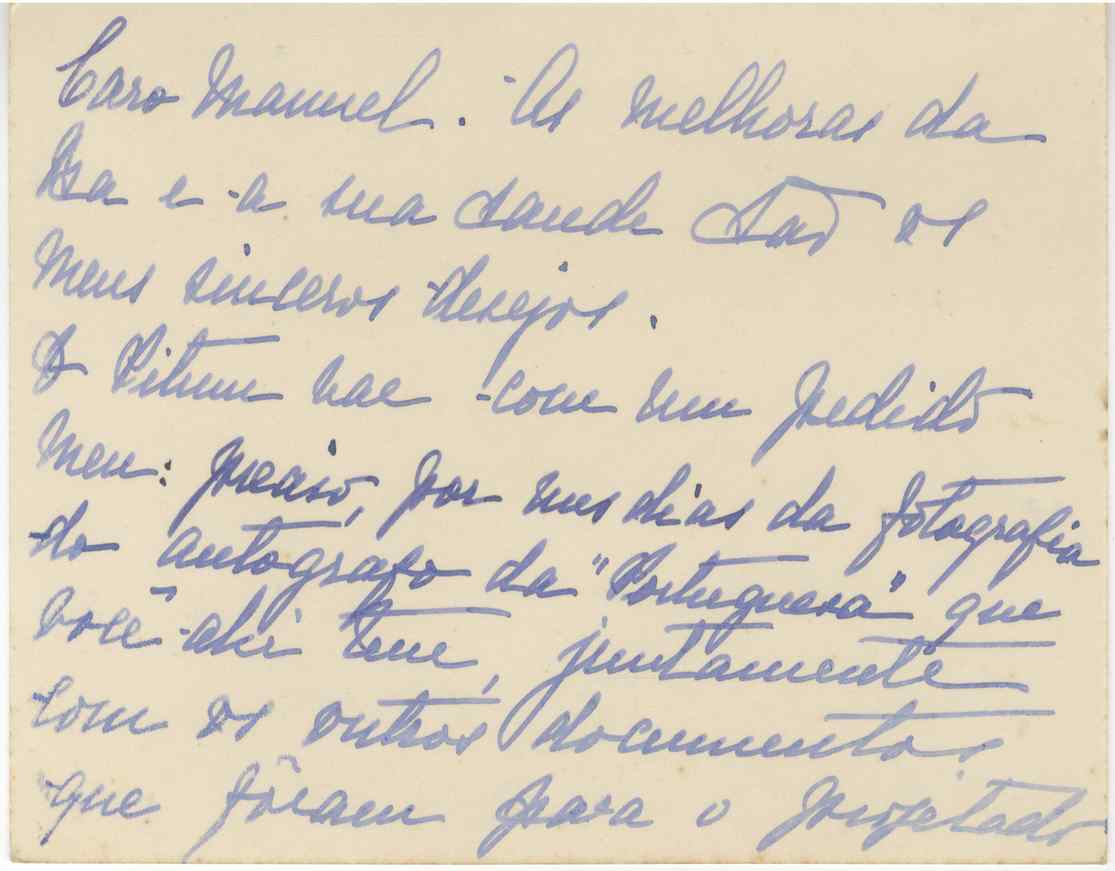 Caro Manuel. As melhoras da
Isa e a sua saude são os
meus sinceros desejos.
O Titum vae com um pedido
meu: preciso, por uns dias da fotografia
do autógrafo da "Portuguesa" que
você ahi tem, juntamente
com os outros documentos
que fôram para o projetado